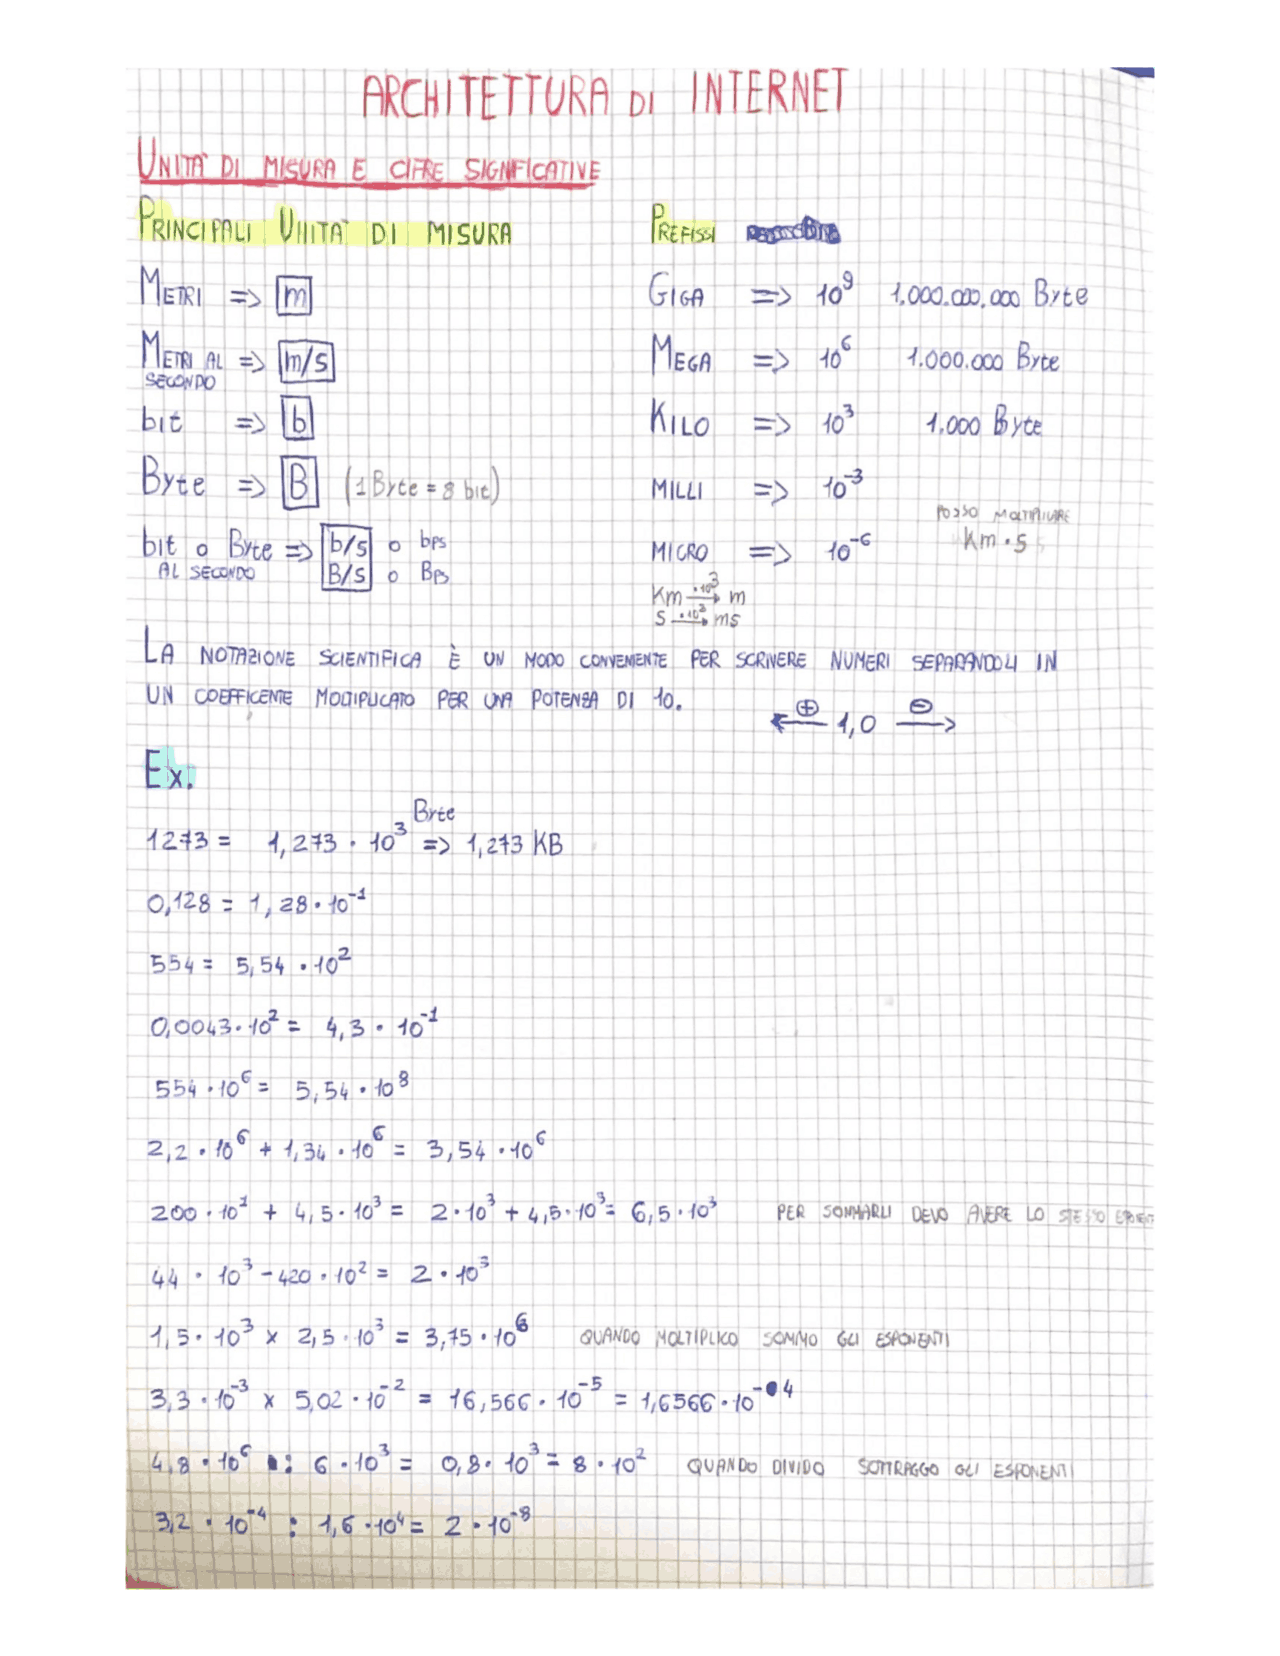 ARCHITETTURA DI INTERNET
UNITA' DI MISURA E CIFRE SIGNIFICATIVE
PRINCIPALI UNITA' DI MISURA
METRI => m
METRI AL SECONDO => m/s
bit => b
Byte => B (1 Byte = 8 bit)
bit o Byte AL SECONDO => b/s o bps
B/s o Bps
PREFISSI
GIGA => 10⁹ 1.000.000.000 Byte
MEGA => 10⁶ 1.000.000 Byte
KILO => 10³ 1.000 Byte
MILLI => 10⁻³
MICRO => 10⁻⁶
POSSO MOLTIPLICARE
Km · s
Km —·10³→ m
s —·10³→ ms
LA NOTAZIONE SCIENTIFICA È UN MODO CONVENIENTE PER SCRIVERE NUMERI SEPARANDOLI IN
UN COEFFICENTE MOLTIPLICATO PER UNA POTENZA DI 10.
← ⊕ 1,0 ⊖ →
Ex.
1273 = 1,273 · 10³ Byte => 1,273 KB
0,128 = 1,28 · 10⁻¹
554 = 5,54 · 10²
0,0043 · 10² = 4,3 · 10⁻¹
554 · 10⁶ = 5,54 · 10⁸
2,2 · 10⁶ + 1,34 · 10⁶ = 3,54 · 10⁶
200 · 10¹ + 4,5 · 10³ = 2 · 10³ + 4,5 · 10³ = 6,5 · 10³ PER SOMMARLI DEVO AVERE LO STESSO
44 · 10³ - 420 · 10² = 2 · 10³
1,5 · 10³ x 2,5 · 10³ = 3,75 · 10⁶ QUANDO MOLTIPLICO SOMMO GLI ESPONENTI
3,3 · 10⁻³ x 5,02 · 10⁻² = 16,566 · 10⁻⁵ = 1,6566 · 10⁻⁴
4,8 · 10⁶ : 6 · 10³ = 0,8 · 10³ = 8 · 10² QUANDO DIVIDO SOTTRAGGO GLI ESPONENTI
3,2 · 10⁻⁴ : 1,6 · 10⁴ = 2 · 10⁻⁸